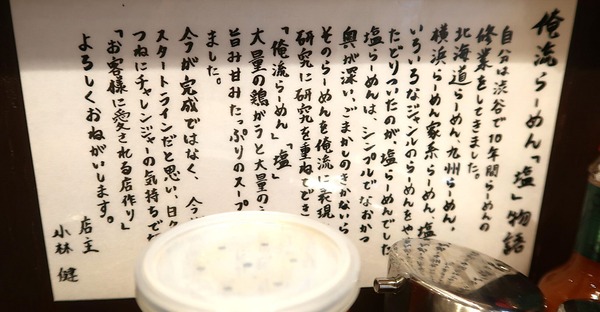 俺流らーめん「塩」物語
自分は渋谷で10年間らーめんの
修業をしてきました。
北海道らーめん、九州らーめん、
横浜らーめん家系らーめん、塩
いろいろなジャンルのらーめんをや
たどりついたのが、塩らーめんでした
塩らーめんは、シンプルでなおかつ
奥が深い、ごまかしのきかないら
そのらーめんを俺流に表現
研究に研究を重ねてでき
「俺流らーめん」「塩」
大量の鶏がらと大量の
旨み甘みたっぷりのスープ
ました。
今が完成ではなく、今
スタートラインだと思い、日々
つねにチャレンジャーの気持ちで
「お客様に愛される店作り」
よろしくおねがいします。
店主
小林 健